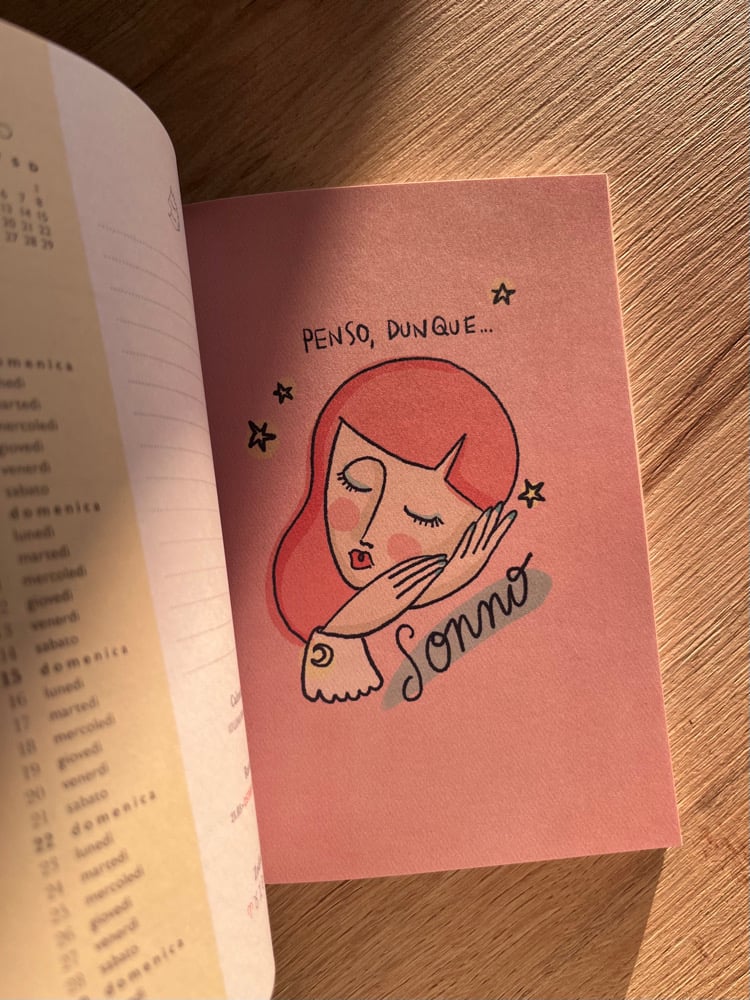 V S D
1
6 7 8
13 14 15
20 21 22
27 28 29
omenica
nedì
artedì
mercoledì
giovedì
venerdì
sabato
domenica
lunedì
martedì
mercoledì
giovedì
venerdì
14 sabato
15 domenica
16 lunedì
17 martedì
18 mercoledì
19 giovedì
20 venerdì
21 sabato
22 domenica
23 lunedì
24 martedì
25 mercoledì
26 giovedì
27 venerdì
28 sabato
domenica
PENSO, DUNQUE...
Sonno